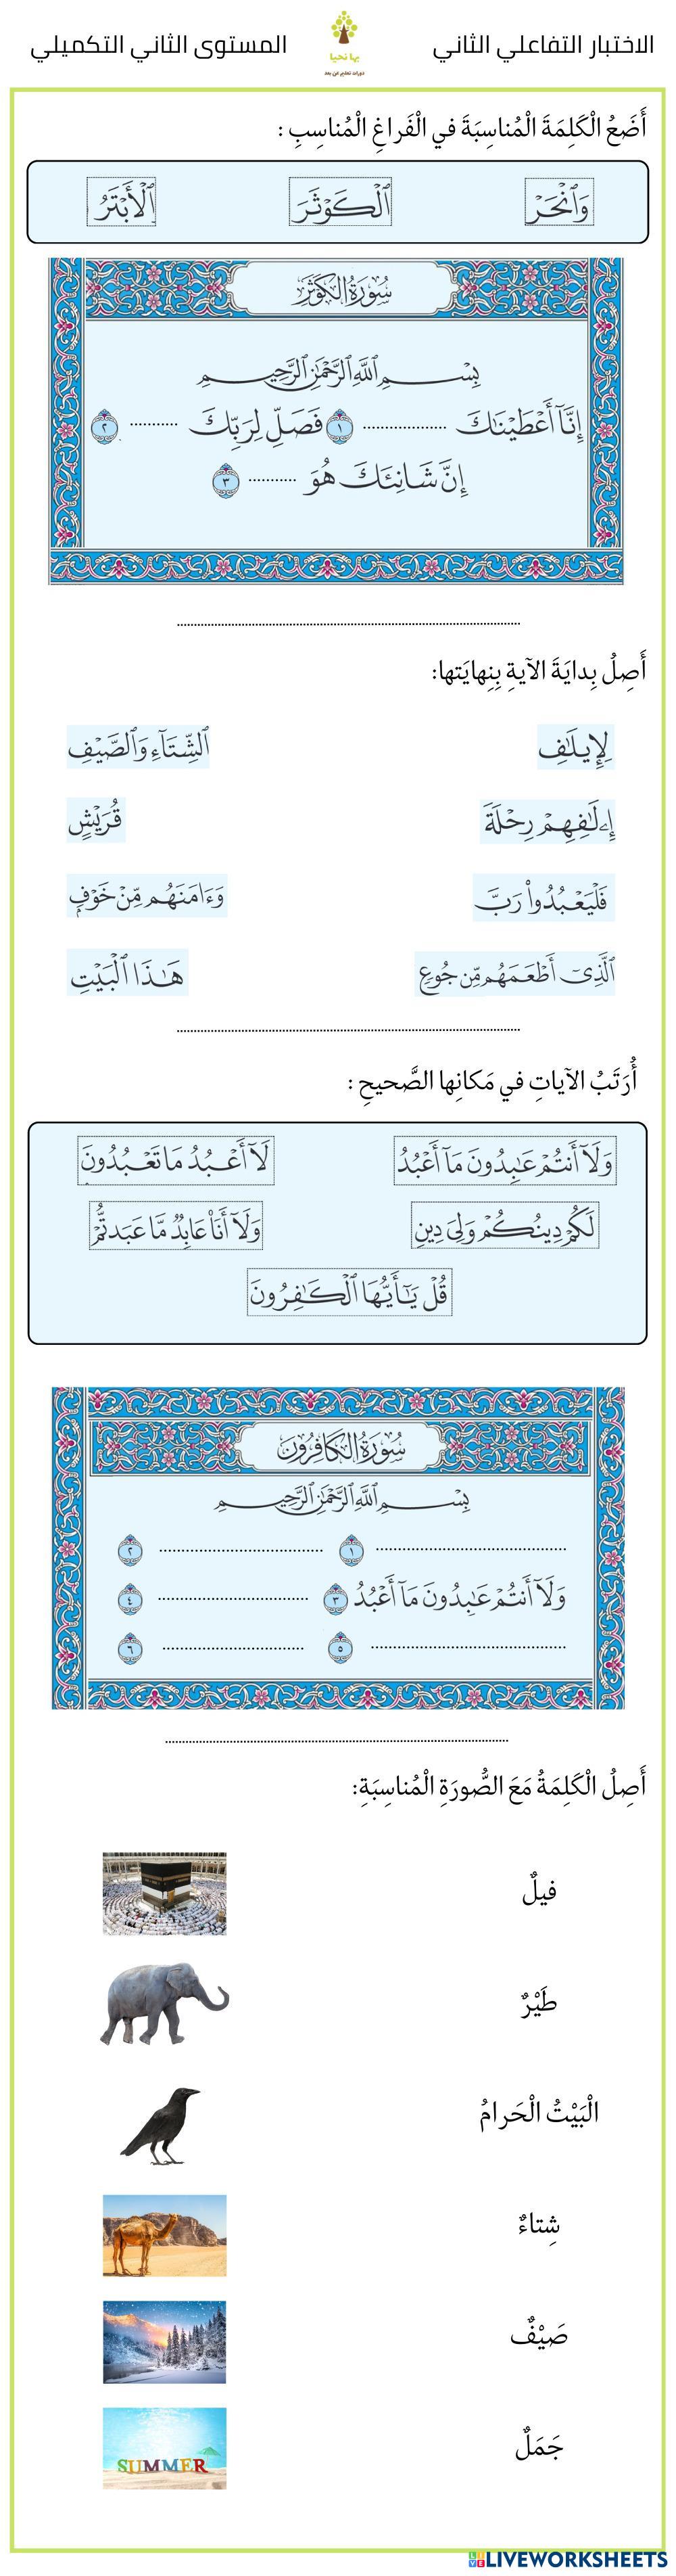 الاختبار التفاعلي الثاني
بها نحيا
دورات تعليم عن بعد
المستوى الثاني التكميلي
أَضَعُ الْكَلِمَةَ الْمُناسِبَةَ في الْفَراغِ الْمُناسِبِ :
وَٱنْحَرْ ٱلْكَوْثَرَ ٱلْأَبْتَرُ
سُورَةُ الكَوْثَرِ
بِسْمِ ٱللَّهِ ٱلرَّحْمَٰنِ ٱلرَّحِيمِ
إِنَّآ أَعْطَيْنَٰكَ .................. ١ فَصَلِّ لِرَبِّكَ .......... ٢
إِنَّ شَانِئَكَ هُوَ .......... ٣
أَصِلُ بِدايَةَ الآيةِ بِنِهايَتها:
لِإِيلَٰفِ ٱلشِّتَآءِ وَٱلصَّيْفِ
إِۦلَٰفِهِمْ رِحْلَةَ قُرَيْشٍ
فَلْيَعْبُدُوا۟ رَبَّ وَءَامَنَهُم مِّنْ خَوْفٍۭ
ٱلَّذِىٓ أَطْعَمَهُم مِّن جُوعٍ هَٰذَا ٱلْبَيْتِ
أُرَتَبُ الآياتِ في مَكانِها الصَّحيحِ :
وَلَآ أَنتُمْ عَٰبِدُونَ مَآ أَعْبُدُ لَآ أَعْبُدُ مَا تَعْبُدُونَ
لَكُمْ دِينُكُمْ وَلِىَ دِينِ وَلَآ أَنَا۠ عَابِدٌ مَّا عَبَدتُّمْ
قُلْ يَٰٓأَيُّهَا ٱلْكَٰفِرُونَ
سُورَةُ الكَافِرُونَ
بِسْمِ ٱللَّهِ ٱلرَّحْمَٰنِ ٱلرَّحِيمِ
.................. ١ .................. ٢
وَلَآ أَنتُمْ عَٰبِدُونَ مَآ أَعْبُدُ ٣ .................. ٤
.................. ٥ .................. ٦
أَصِلُ الْكَلِمَةُ مَعَ الصُّورَةِ الْمُناسِبَةِ:
فيلٌ
طَيْرٌ
الْبَيْتُ الْحَرامُ
شِتاءٌ
صَيْفٌ
جَمَلٌ
SUMMER
LIVEWORKSHEETS